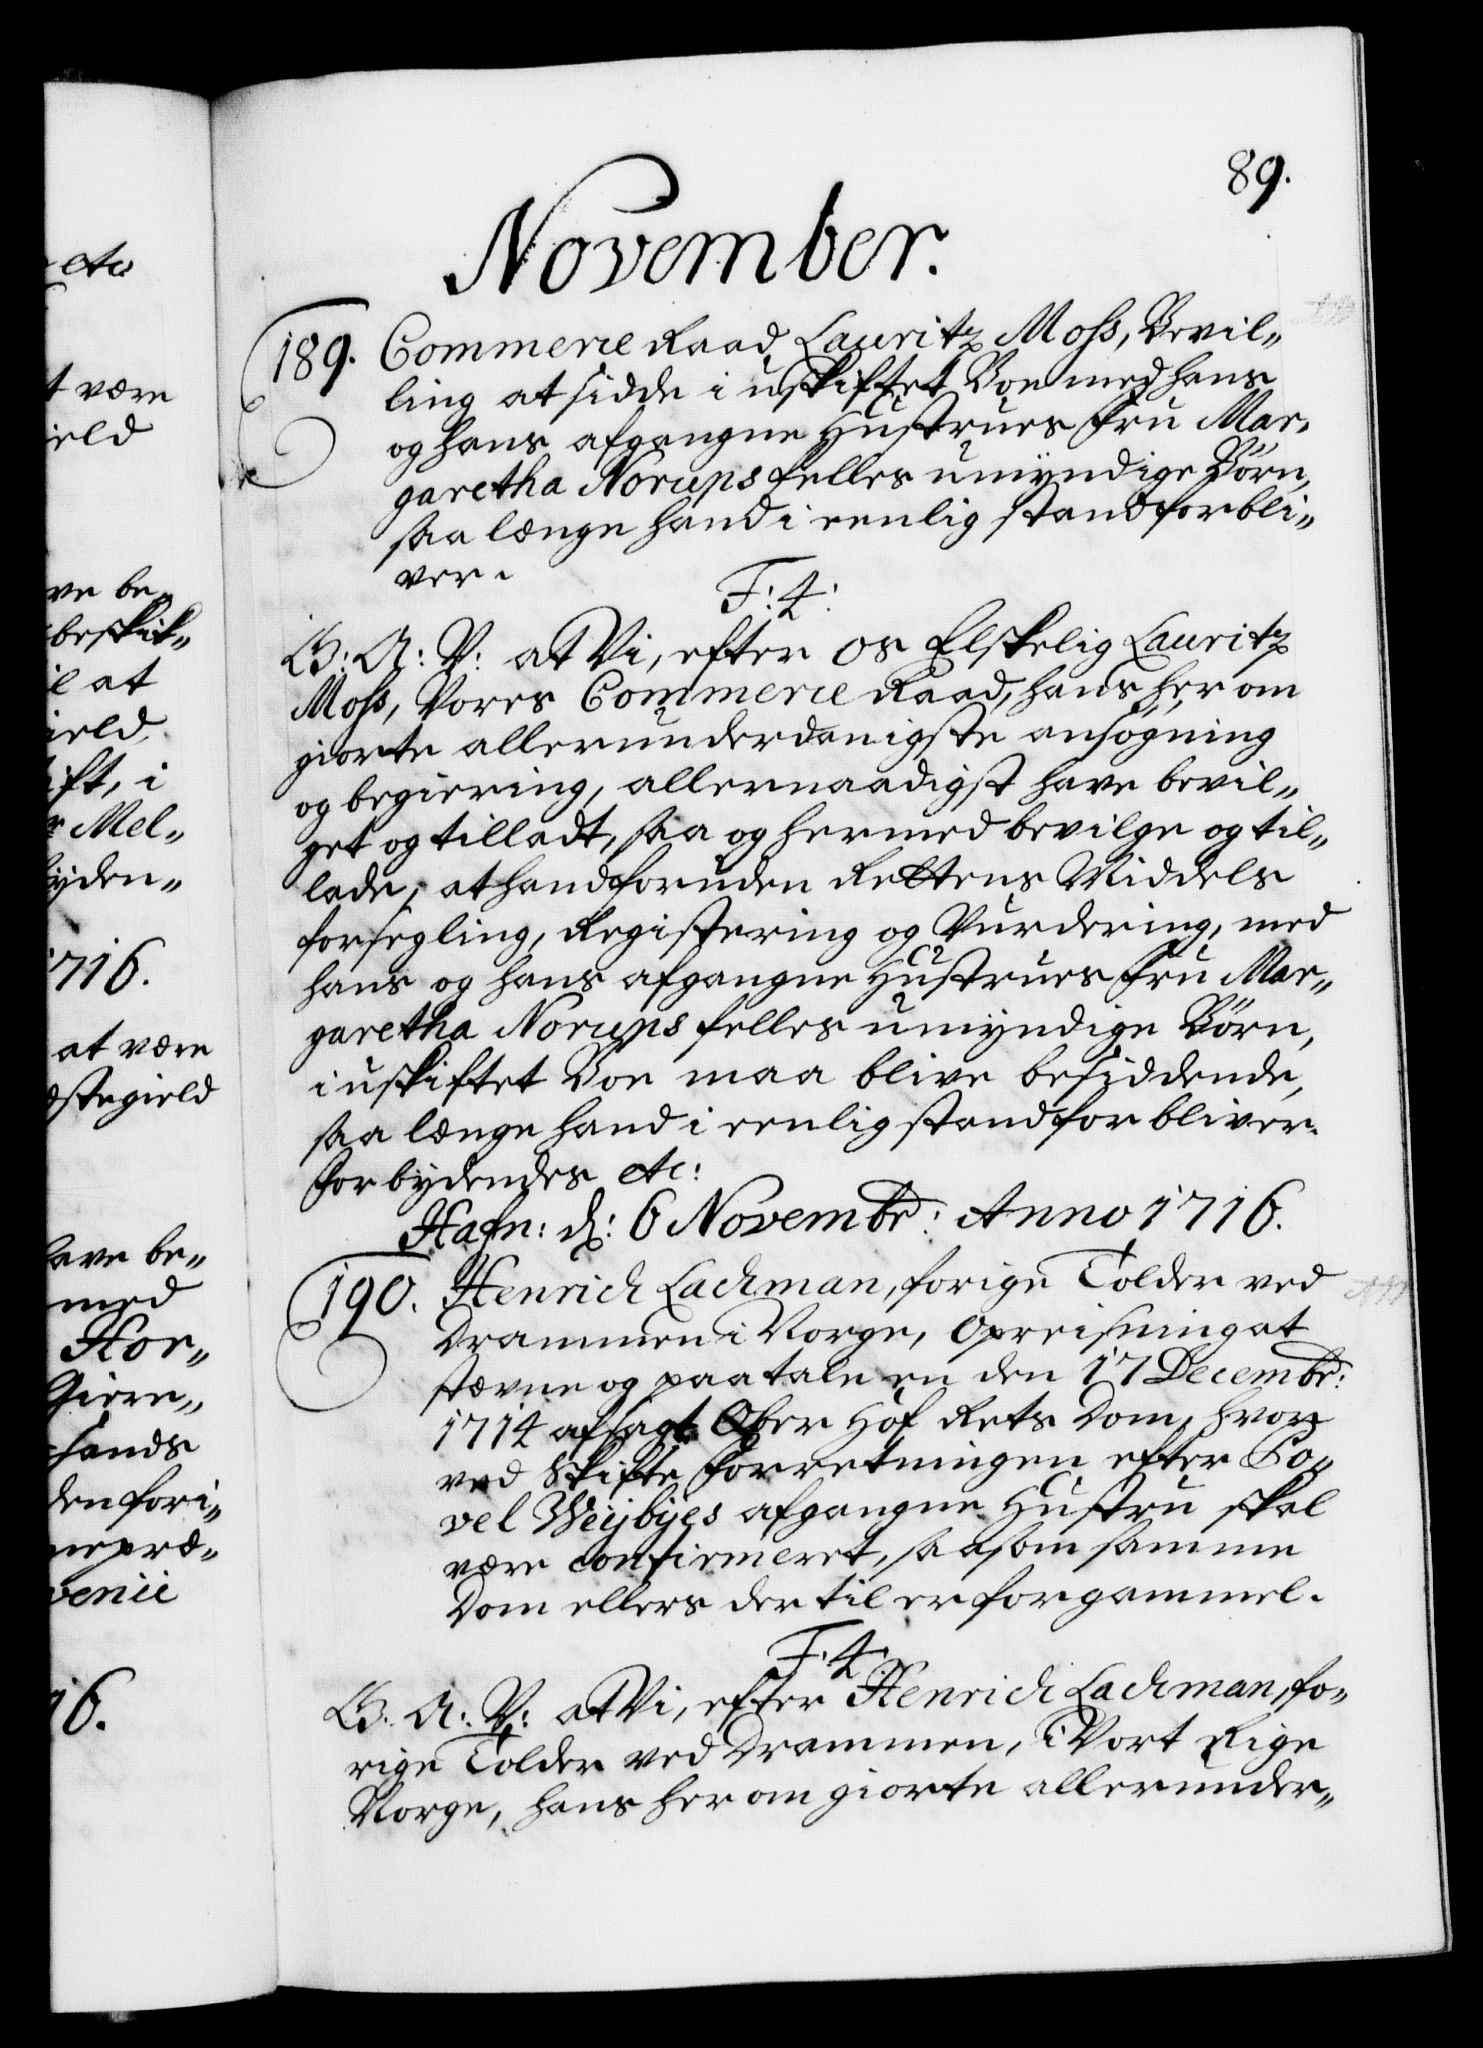 etc
t være
ield
ve be„
beskik„
il at
ield,
ift, i
r Mel„
yden„
1716.
at være
estegield
have be„
med
Hor„
Giere„
hands
den fori„
nepræ„
venii
16.
89.
November.
189. Commerce Raad Lauritz Moss, Bevil„
ling at sidde i uskiftet Boe med hans
og hans afgangne Hustrues Fru Mar„
garetha Norups felles umyndige Börn,
saa længe hand i eenlig stand forbli„
ver.
F: 4:
G: A: V: at Vi, efter os Elskelig Lauritz
Moss, Vores Commerce Raad, hans her om
giorte allerunderdanigste ansögning
og begiering, allernaadigst have bevil„
get og tilladt, saa og hermed bevilge og til„
lade, at hand foruden Rettens Middels
forsegling, Registering og Vurdering, med
hans og hans afgangne Hustrues Fru Mar„
garetha Norups felles umyndige Börn,
i uskiftet Boe maa blive besiddende,
saa længe hand i eenlig stand forbliver.
Forbydendes etc:
Hafn: d: 6 Novembr: Anno 1716.
190. Henrich Lachman, forige Tolder ved
Drammen i Norge, Opreisning at
stævne og paatale en den 17 Decembr:
1714 afsagt Ober Hof Rets Dom, hvor
ved Skifte Forretningen efter Po„
vel Weybyes afgangne Hustru skal
være confirmeret, saasom samme
Dom ellers der til er for gammel.
F: 4.
G: A: V: at Vi, efter Henrich Lachman, fo„
rige Tolder ved Drammen, i Vort Rige
Norge, hans her om giorte allerunder„